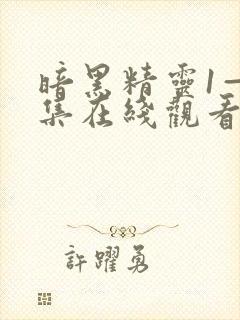 暗黑精靈1—
集在綫觀看
許躍勇